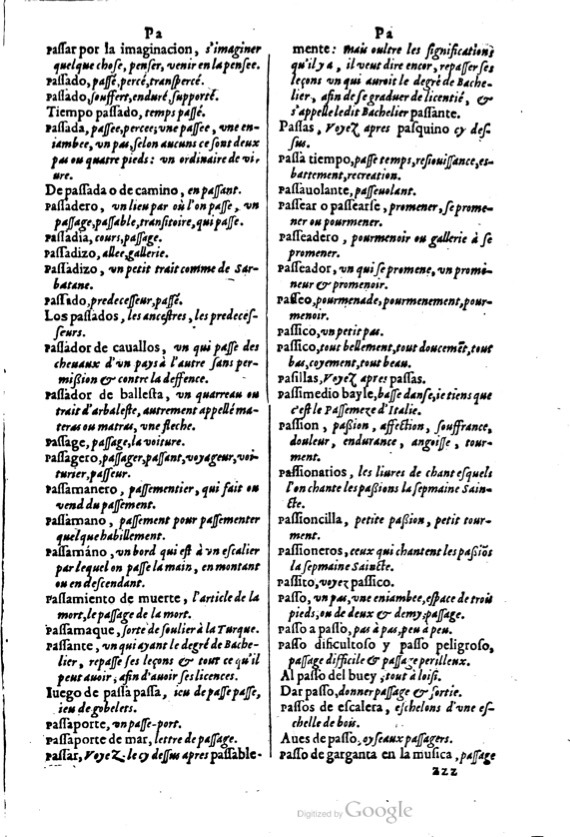 Pa
Passar por la imaginacion, s'imaginer
quelque chose, penser, venir en la pensee.
Passado, passé, percé, transpercé.
Passado, souffert, enduré, supporté.
Tiempo passado, temps passé.
Passada, passee, percee, vne passee, vne en-
iambee, vn pas, selon aucuns ce sont deux
pas ou quatre pieds: vn ordinaire de vi-
ure.
De passada o de camino, en passant.
Passadero, vn lieu par où l'on passe, vn
passage, passable, transitoire, qui passe.
Passadia, cours, passage.
Passadizo, allee, gallerie.
Passadizo, vn petit trait comme de Sar-
batane.
Passado, predecesseur, passé.
Los passados, les ancestres, les predeces-
seurs.
Passador de cauallos, vn qui passe des
cheuaux d'vn pays à l'autre sans per-
mission & contre la deffence.
Passador de ballesta, vn quarreau ou
trait d'arbaleste, autrement appellé ma-
teras ou matras, vne flesche.
Passage, passage, la voiture.
Passagero, passager, passant, voyageur, voi-
turier, passeur.
Passamanero, passementier, qui fait ou
vend du passement.
Passamano, passement pour passementer
quelque habillement.
Passamáno, vn bord qui est à vn escalier
par lequel on passe la main, en montant
ou en descendant.
Passamiento de muerte, l'article de la
mort, le passage de la mort.
Passamaque, sorte de soulier à la Turque.
Passante, vn qui ayant le degré de Bache-
lier, repasse ses leçons & tout ce qu'il
peut auoir, afin d'auoir ses licences.
Iuego de passa passa, ieu de passe passe,
ieu de gobelets.
Passaporte, vn passe-port.
Passaporte de mar, lettre de passage.
Passar, Voyez le cy dessus apres passable-
Pa
mente: mais oultre les significations
qu'il y a, il veut dire encor, repasser ses
leçons vn qui auroit le degré de Bache-
lier, afin de se graduer de licentié, &
s'appelle ledit Bachelier passante.
Passas, Voyez apres pasquino cy des-
sus.
Passa tiempo, passe temps, resiouissance, es-
battement, recreation.
Passauolante, passeuolant.
Passear o passearse, promener, se prome-
ner ou pourmener.
Passeadero, pourmenoir ou gallerie à se
promener.
Passeador, vn qui se promene, vn prome-
neur & promenoir.
Passeo, pourmenade, pourmenement, pour-
menoir.
Passico, vn petit pas.
Passico, tout bellement, tout doucemẽt, tout
bas, coyement, tout beau.
Pasillas, Voyez apres passas.
Passimedio bayle, basse danse, ie tiens que
c'est le Passemeze d'Italie.
Passion, passion, affection, souffrance,
douleur, endurance, angoisse, tour-
ment.
Passionarios, les liures de chant esquels
l'on chante les passions la sepmaine Sain-
cte.
Passioncilla, petite passion, petit tour-
ment.
Passioneros, ceux qui chantent les passiõs
la sepmaine Saincte.
Passito, voyez passico.
Passo, vn pas, vne eniambee, espace de trois
pieds, ou de deux & demy, passage.
Passo a passo, pas à pas, peu à peu.
Passo dificultoso y passo peligroso,
passage difficile & passage perilleux.
Al passo del buey, tout à loisi.
Dar passo, donner passage & sortie.
Passos de escalera, eschelons d'vne es-
chelle de bois.
Aues de passo, oyseaux passagers.
Passo de garganta en la musica, passage
zzz
Digitized by Google